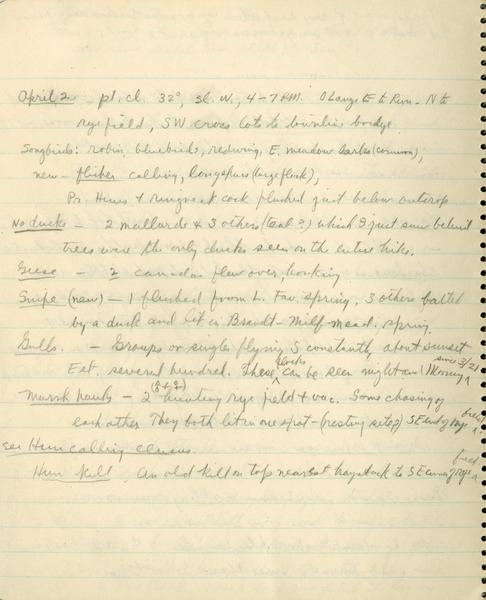 April 2 - pt. cl. 32°, sl. W., 4-7 P.M. O Lange E to River - N to
rye field, SW cross lots to burline bridge.
Songbirds: robin, bluebirds, redwing, E. meadow larks (common),
new - flicker calling, longspurs (large flock),
Pr. Hens + ringneck cock flushed just below outcrop
No ducks - 2 mallards & 3 others (teal?) which I just saw behind
trees were the only ducks seen on the entire hike.
Geese - 2 canadas flew over, honking
Snipe (new) - 1 flushed from L. Fav. spring, 3 others
by a duck and lit in Brandt - Milf mead. spring.
Gulls. - Groups or singles flying S constantly about sunset
Est. several hundred. These flocks can be seen night and Morning since 3/21
Marsh hawks - 2 (♂ + ♀) hunting rye field + vac. Some chasing of
each other They both lit in one spot - (resting site?) SE end of rye field.
See Hun calling census.
Hun kill. An old kill on top nearest haystack to SE corner of rye field